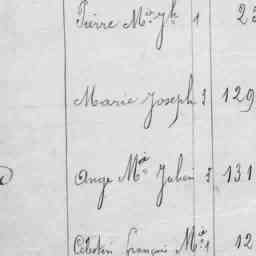 Pierre Mie Jh 1 23
Marie Joseph 3 129
Ange Mie Julien 5 131
Célestin français Mie 1 12